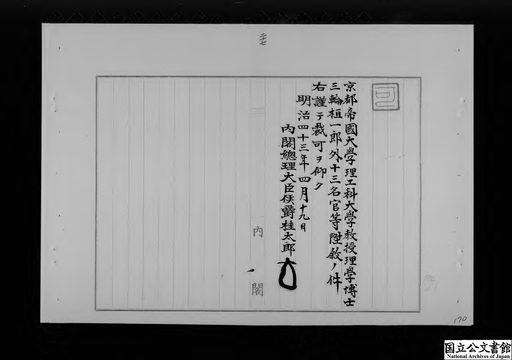 可
京都帝國大學理工科大學教授理學博士
三輪桓一郎外十三名官等陞敘ノ件
右謹テ裁可ヲ仰ク
明治四十三年四月十九日
內閣總理大臣侯爵桂太郎
內閣
170
国立公文書館
National Archives of Japan